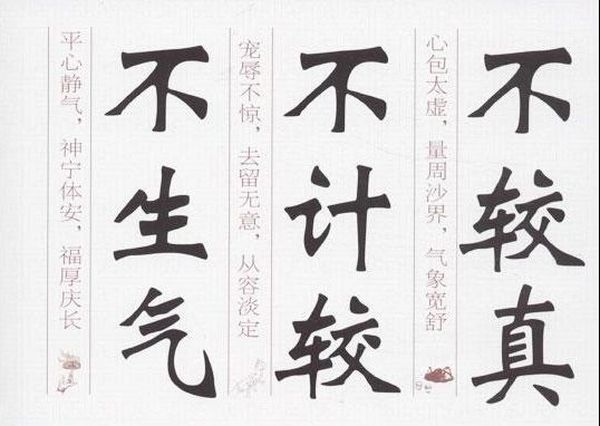 不较真
心包太虚，量周沙界，气象宽舒
不计较
宠辱不惊，去留无意，从容淡定
不生气
平心静气，神宁体安，福厚庆长